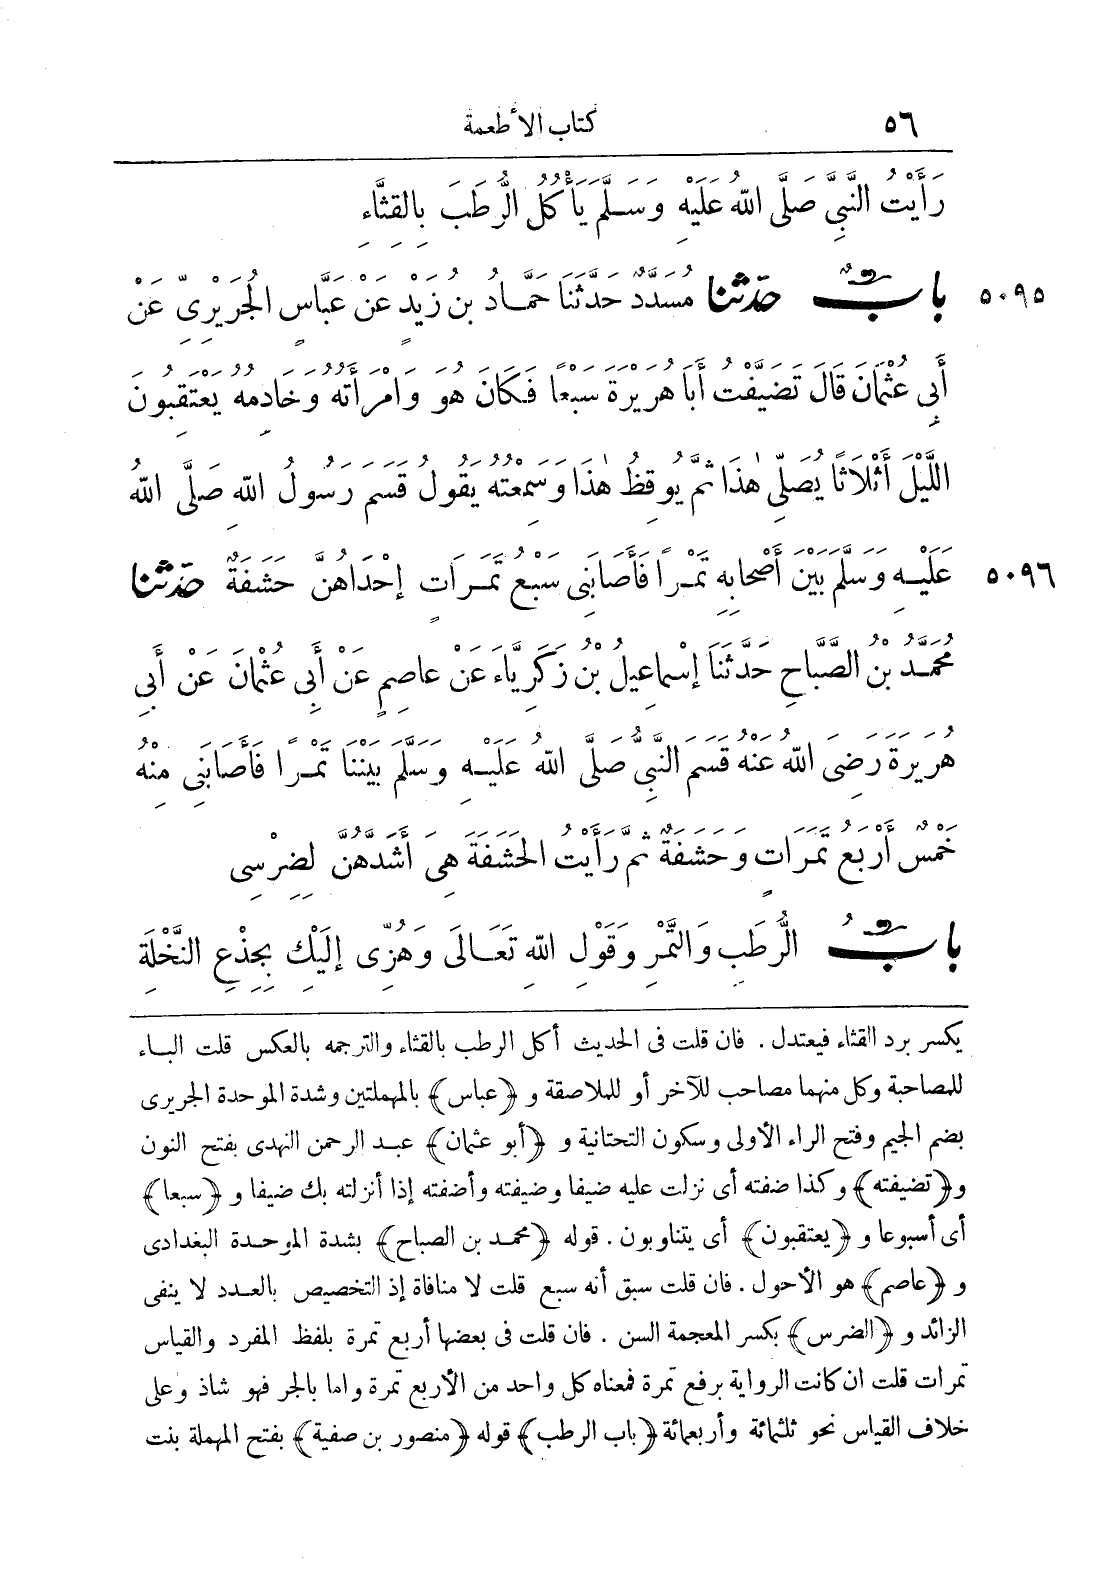 ٥٦ كتاب الأطعمة
رَأَيْتُ النَّبِيَّ صَلَّى اللهُ عَلَيْهِ وَسَلَّمَ يَأْكُلُ الرُّطَبَ بِالْقِثَّاءِ
٥٠٩٥ بَابٌ حَدَّثَنَا مُسَدَّدٌ حَدَّثَنَا حَمَّادُ بْنُ زَيْدٍ عَنْ عَبَّاسٍ الْجُرَيْرِىِّ عَنْ
أَبِى عُثْمَانَ قَالَ تَضَيَّفْتُ أَبَا هُرَيْرَةَ سَبْعًا فَكَانَ هُوَ وَامْرَأَتُهُ وَخَادِمُهُ يَعْتَقِبُونَ
اللَّيْلَ أَثْلَاثًا يُصَلِّى هٰذَا ثُمَّ يُوقِظُ هٰذَا وَسَمِعْتُهُ يَقُولُ قَسَمَ رَسُولُ اللهِ صَلَّى اللهُ
٥٠٩٦ عَلَيْهِ وَسَلَّمَ بَيْنَ أَصْحَابِهِ تَمْرًا فَأَصَابَنِى سَبْعُ تَمَرَاتٍ إِحْدَاهُنَّ حَشَفَةٌ حَدَّثَنَا
مُحَمَّدُ بْنُ الصَّبَّاحِ حَدَّثَنَا إِسْمَاعِيلُ بْنُ زَكَرِيَّاءَ عَنْ عَاصِمٍ عَنْ أَبِى عُثْمَانَ عَنْ أَبِى
هُرَيْرَةَ رَضِىَ اللهُ عَنْهُ قَسَمَ النَّبِىُّ صَلَّى اللهُ عَلَيْهِ وَسَلَّمَ بَيْنَنَا تَمْرًا فَأَصَابَنِى مِنْهُ
خَمْسٌ أَرْبَعُ تَمَرَاتٍ وَحَشَفَةٌ ثُمَّ رَأَيْتُ الْحَشَفَةَ هِىَ أَشَدُّهُنَّ لِضِرْسِى
بَابُ الرُّطَبِ وَالتَّمْرِ وَقَوْلِ اللهِ تَعَالَى وَهُزِّى إِلَيْكِ بِجِذْعِ النَّخْلَةِ
يكسر برد القثاء فيعتدل . فان قلت فى الحديث أكل الرطب بالقثاء والترجمه بالعكس قلت الباء
للمصاحبة وكل منهما مصاحب للآخر أو للملاصقة و ﴿عباس﴾ بالمهملتين وشدة الموحدة الجريرى
بضم الجيم وفتح الراء الأولى وسكون التحتانية و ﴿أبو عثمان﴾ عبد الرحمن النهدى بفتح النون
و﴿تضيفته﴾ وكذا ضفته أى نزلت عليه ضيفا وضيفته وأضفته إذا أنزلته بك ضيفا و ﴿سبعا﴾
أى أسبوعا و ﴿يعتقبون﴾ أى يتناوبون . قوله ﴿محمد بن الصباح﴾ بشدة الموحدة البغدادى
و ﴿عاصم﴾ هو الأحول . فان قلت سبق أنه سبع قلت لا منافاة إذ التخصيص بالعدد لا ينفى
الزائد و ﴿الضرس﴾ بكسر المعجمة السن . فان قلت فى بعضها أربع تمرة بلفظ المفرد والقياس
تمرات قلت ان كانت الرواية برفع تمرة فمعناه كل واحد من الأربع تمرة واما بالجر فهو شاذ وعلى
خلاف القياس نحو ثلثمائة وأربعمائة ﴿باب الرطب﴾ قوله ﴿منصور بن صفية﴾ بفتح المهملة بنت